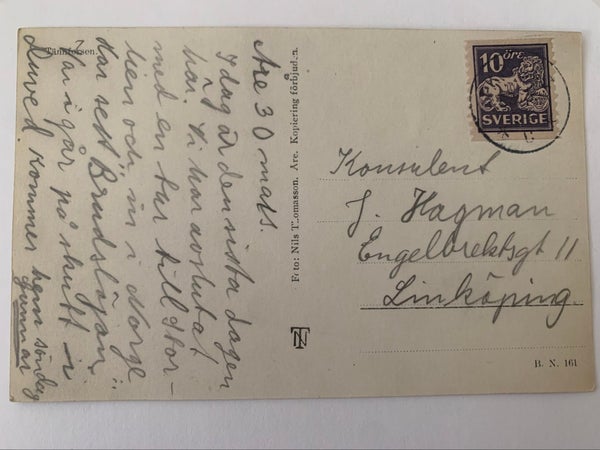 Tännforsen.
Åre 30 mars.
I dag är den sista dagen
här. Vi har avslutat
med en tur till Stor-
lien och in i Norge
Har sett Brudslöjan.
Var i går på skutt i
Duved. Kommer hem söndag
Gunnar
Foto: Nils Thomasson. Åre. Kopiering förbjuden.
NT
10 ÖRE
SVERIGE
Konsulent
J. Hagman
Engelbrektsgt 11
Linköping.
B. N. 161